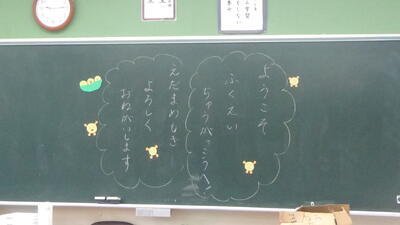 ようこそ
ふくえい
ちゅうがっこうへ!
えだまめもきー
よろしく
おねがいします